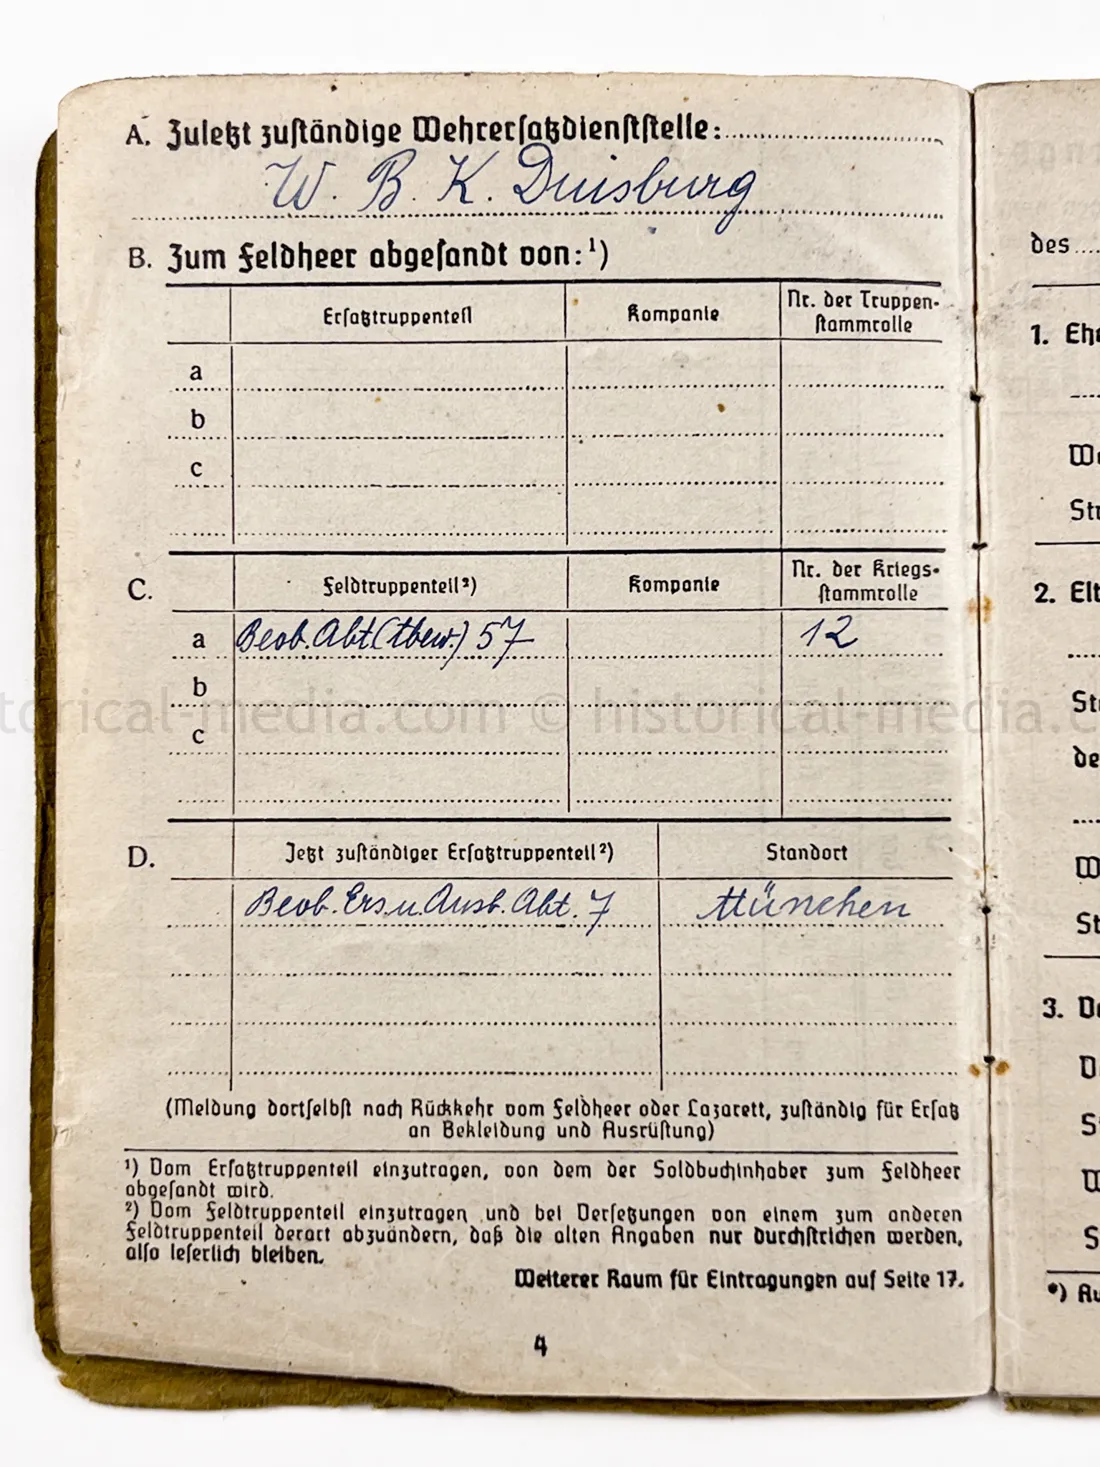 A. Zuletzt zuständige Wehrersatzdienststelle:
W. B. K. Duisburg
B. Zum Feldheer abgesandt von: ¹)
Ersatztruppenteil Kompanie Nr. der Truppen-
stammrolle
a
b
c
C. Feldtruppenteil ²) Kompanie Nr. der Kriegs-
stammrolle
a Beob. Abt. (tbew.) 57 12
b
c
D. Jetzt zuständiger Ersatztruppenteil ²) Standort
Beob. Ers. u. Ausb. Abt. 7 München
(Meldung dortselbst nach Rückkehr vom Feldheer oder Lazarett, zuständig für Ersatz
an Bekleidung und Ausrüstung)
¹) Vom Ersatztruppenteil einzutragen, von dem der Soldbuchinhaber zum Feldheer
abgesandt wird.
²) Vom Feldtruppenteil einzutragen und bei Versetzungen von einem zum anderen
Feldtruppenteil derart abzuändern, daß die alten Angaben nur durchstrichen werden,
also leserlich bleiben.
Weiterer Raum für Eintragungen auf Seite 17.
4
des
1.
2.
3.
*)
historical-media.com © historical-media.c